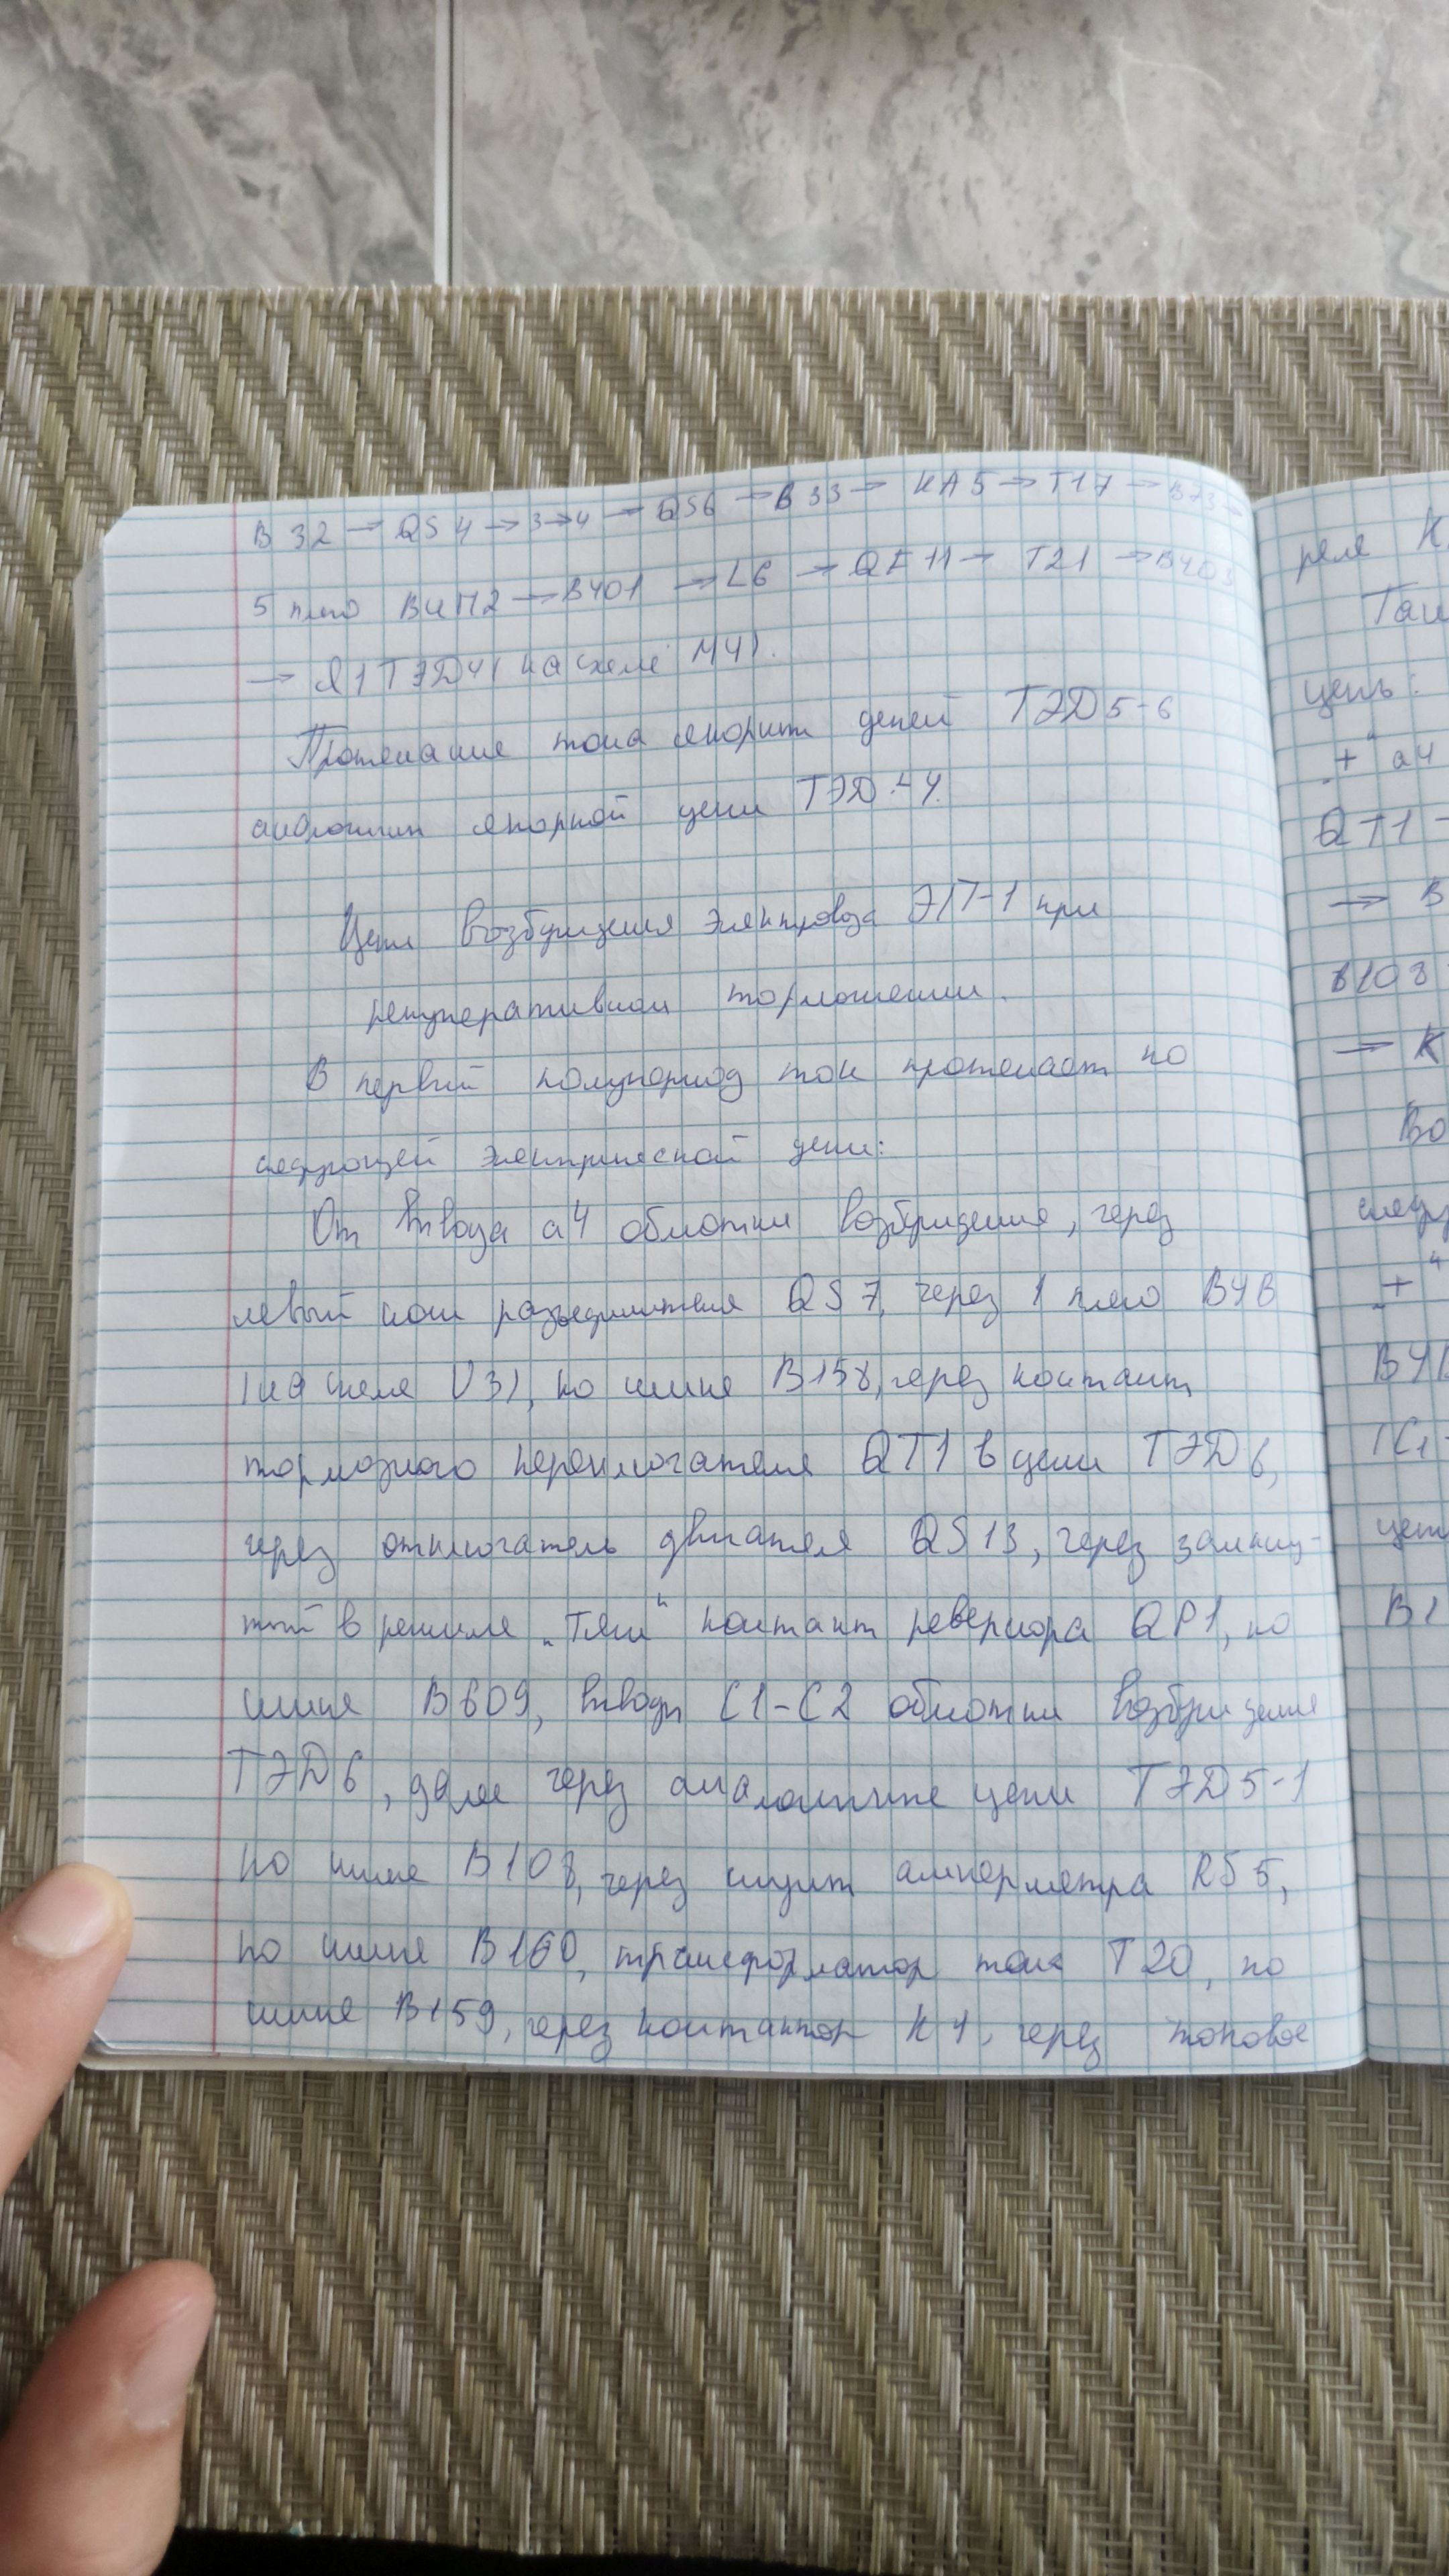 В 32 → QS 4 → 3→4 → QS6 → В 33 → КА5 → Т17 → В73 →
5 плечо ВИП2 → В401 → L6 → QF11 → Т21 → В403
→ Я1 ТЭД4 (на схеме М4).
Протекание тока якорит цепей ТЭД 5-6
аналогично якорной цепи ТЭД 4.
Цепи возбуждения электровоза при
рекуперативном торможении.
В первый полупериод ток протекает по
следующей электрической цепи:
От вывода а4 обмотки возбуждения, через
левый нож разъединителя QS7, через 1 плечо ВУВ
(на схеме U3), по шине В158, через контакт
тормозного переключателя QT1 в цепи ТЭД 6,
через отключатель двигателя QS13, через замкну-
тый в режиме „Тяги“ контакт реверсора QP1, по
шине В609, выводы С1-С2 обмотки возбуждения
ТЭД6, далее через аналогичные цепи ТЭД 5-1
по шине В108, через шунт амперметра RS5,
по шине В160, трансформатор тока Т20, по
шине В159, через контактор К1, через токовое
реле К
цепь:
„+“ а4
QT1 -
→ В
В108
→ К
Во
следу
„+“
ВУВ
(С1-
цепи
В1